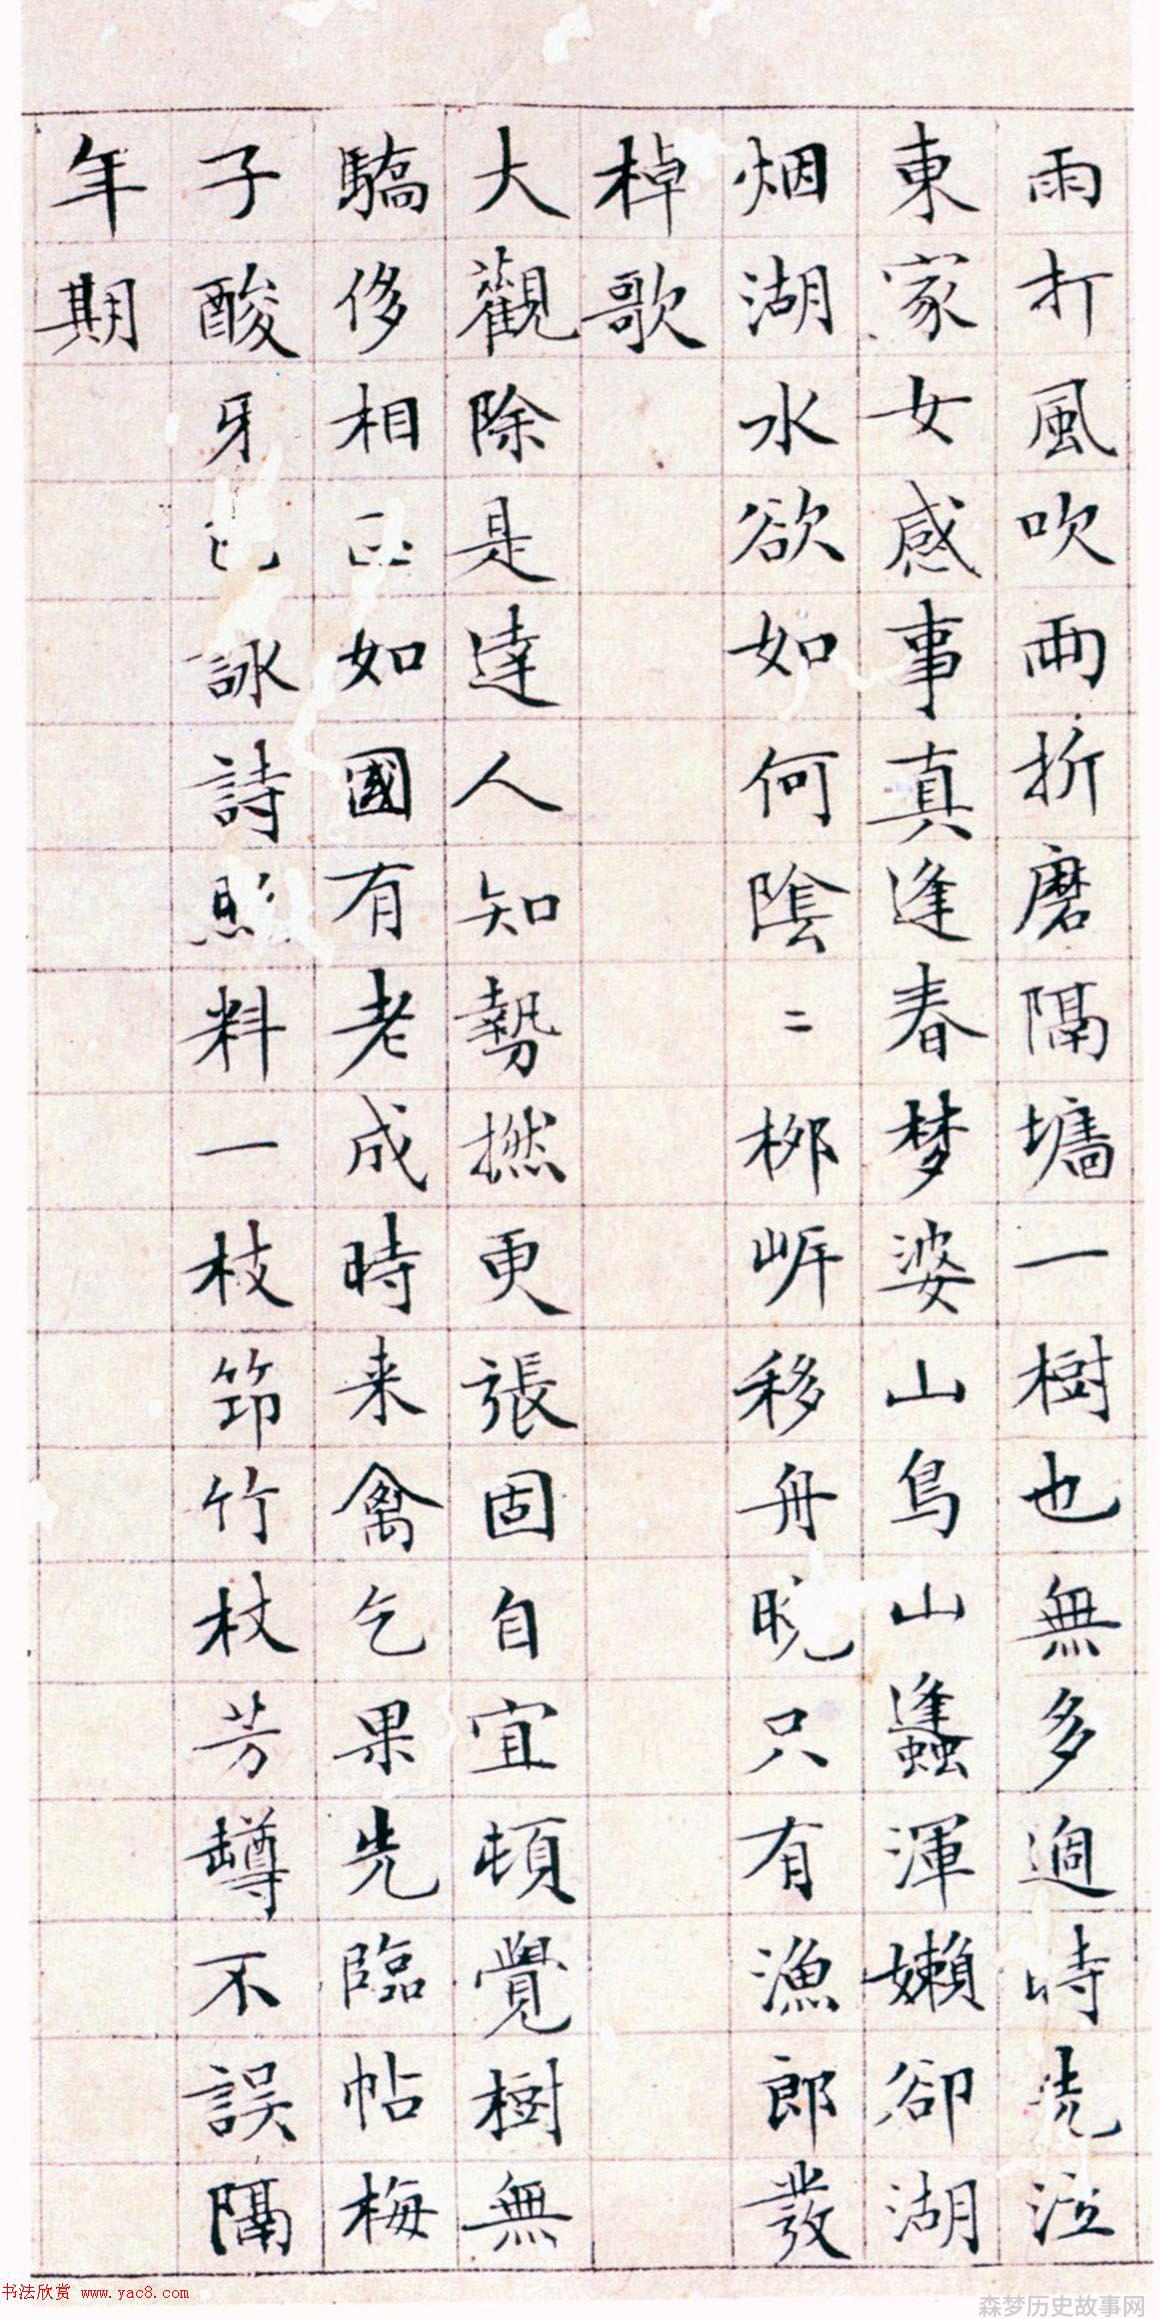 雨打風吹兩折磨隔墻一樹也無多過時洗泣
東家女感事真逢春梦婆山鳥山蠭渾嬾卻湖
烟湖水欲如何陰二栁岍移舟晚只有漁郎發
棹歌
大觀除是達人知勢撚更張固自宜頓覺樹無
驕侈相如國有老成時来禽乞果先臨帖梅
子酸牙詠詩照料一枝笻竹杖芳罇不誤隔
年期
书法欣赏 www.yac8.com
森梦历史故事网